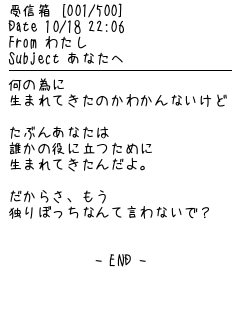 受信箱 [001/500]
Date 10/18 22:06
From わたし
Subject あなたへ
何の為に
生まれてきたのかわかんないけど
たぶんあなたは
誰かの役に立つために
生まれてきたんだよ。
だからさ、もう
独りぼっちなんて言わないで？
- END -